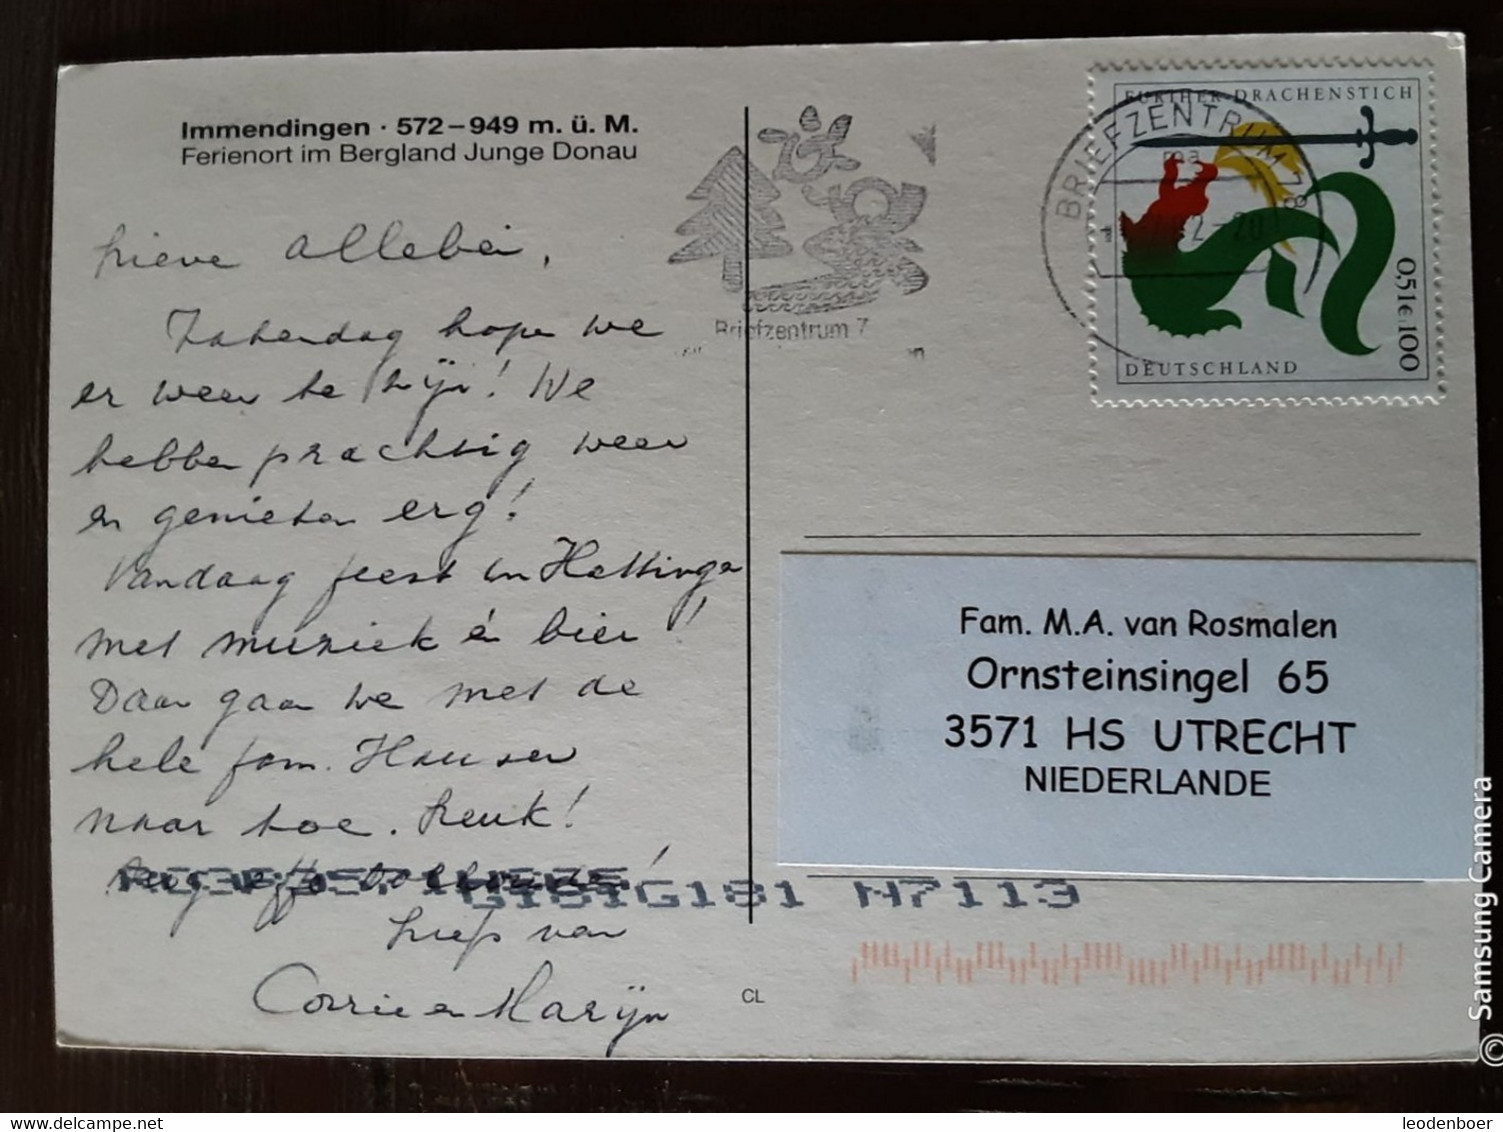 Immendingen · 572–949 m. ü. M.
Ferienort im Bergland Junge Donau
Lieve allebei,
Zaterdag hopen we
er weer te zijn! We
hebben prachtig weer
en genieten erg!
Vandaag feest in Hattingen
met muziek én bier!
Daar gaan we met de
hele fam. Hauser
naar toe. Leuk!
Liefs van
Corrie en Marijn
CL
Briefzentrum 7
BRIEFZENTRUM
FURTHER DRACHENSTICH
0,51€ 100
DEUTSCHLAND
Fam. M.A. van Rosmalen
Ornsteinsingel 65
3571 HS UTRECHT
NIEDERLANDE
G181 N7113
© Samsung Camera
delcampe.net
leodenboer